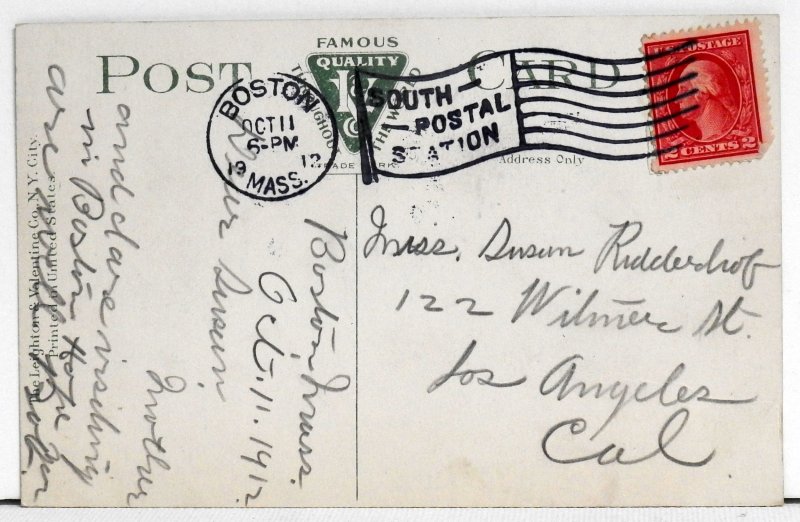 POST CARD
FAMOUS
QUALITY
THROUGHOUT THE WORLD
TRADE MARK
Address Only
The Leighton & Valentine Co., N.Y. City.
Printed in United States.
BOSTON
OCT 11
6-PM
1912
MASS.
SOUTH-
-POSTAL
STATION
U.S. POSTAGE
2 CENTS 2
Boston, Mass.
Oct. 11. 1912
Dear Susan
Mother
and Clare visiting
in Boston Hope
are well
Miss. Susan Ridderhof
122 Wilmer St.
Los Angeles
Cal